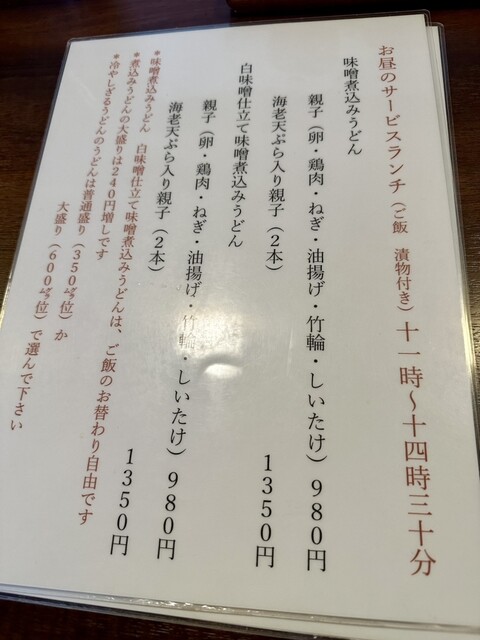 お昼のサービスランチ（ご飯　漬物付き）十一時～十四時三十分
味噌煮込みうどん
親子（卵・鶏肉・ねぎ・油揚げ・竹輪・しいたけ）９８０円
海老天ぷら入り親子（２本）１３５０円
白味噌仕立て味噌煮込みうどん
親子（卵・鶏肉・ねぎ・油揚げ・竹輪・しいたけ）９８０円
海老天ぷら入り親子（２本）１３５０円
＊味噌煮込みうどん　白味噌仕立て味噌煮込みうどんは、ご飯のお替わり自由です
＊煮込みうどんの大盛りは２４０円増しです
＊冷やしざるうどんのうどんは普通盛り（３５０㌘位）か
大盛り（６００㌘位）で選んで下さい